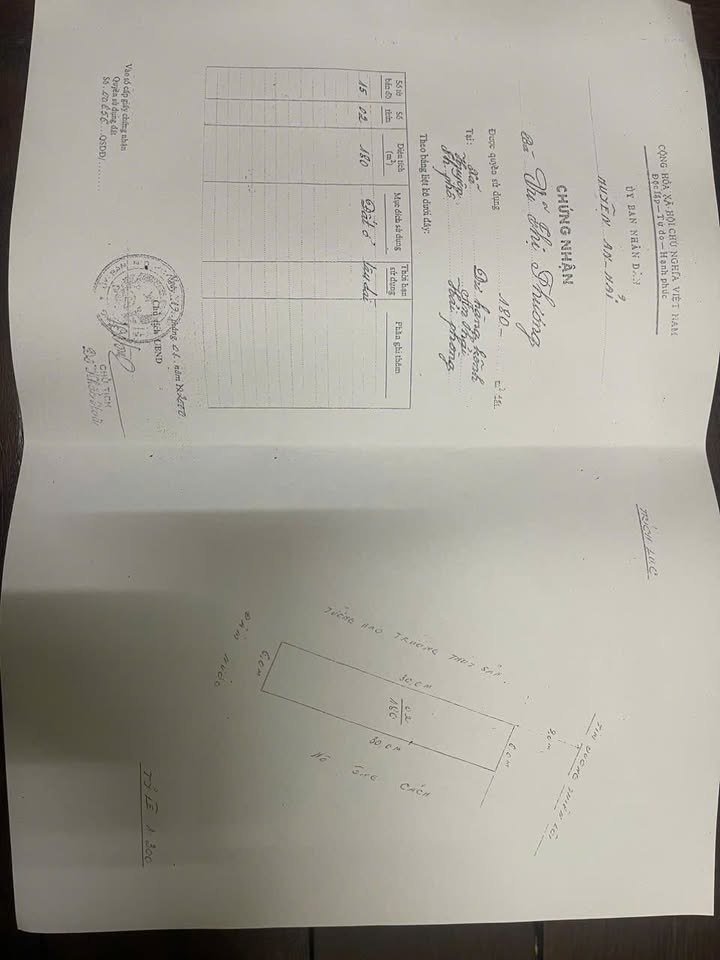 CỘNG HÒA XÃ HỘI CHỦ NGHĨA VIỆT NAM
Độc lập — Tự do — Hạnh phúc
ỦY BAN NHÂN DÂN
HUYỆN AN-HẢI
CHỨNG NHẬN
Bà Vũ Thị Phương
Được quyền sử dụng 180- m² đất
Tại: Xã Dư hàng kênh
Huyện An Hải
Th.phố Hải phòng
Theo bảng liệt kê dưới đây:
Số tờ bản đồ
Số thửa
Diện tích (m²)
Mục đích sử dụng
Thời hạn sử dụng
Phần ghi thêm
15 02 180 Đất ở lâu dài
Ngày 17 tháng 01 năm 2000
Chủ tịch UBND
CHỦ TỊCH
Vào sổ cấp giấy chứng nhận
Quyền sử dụng đất
Số QSDĐ/
TRÍCH LỤC
TƯỜNG RÀO TRƯỜNG THUỶ SẢN
30.0 M
6.0 M
02
180
30.0 M
6.0 M
2.0 M
TỶ LỆ 1 200